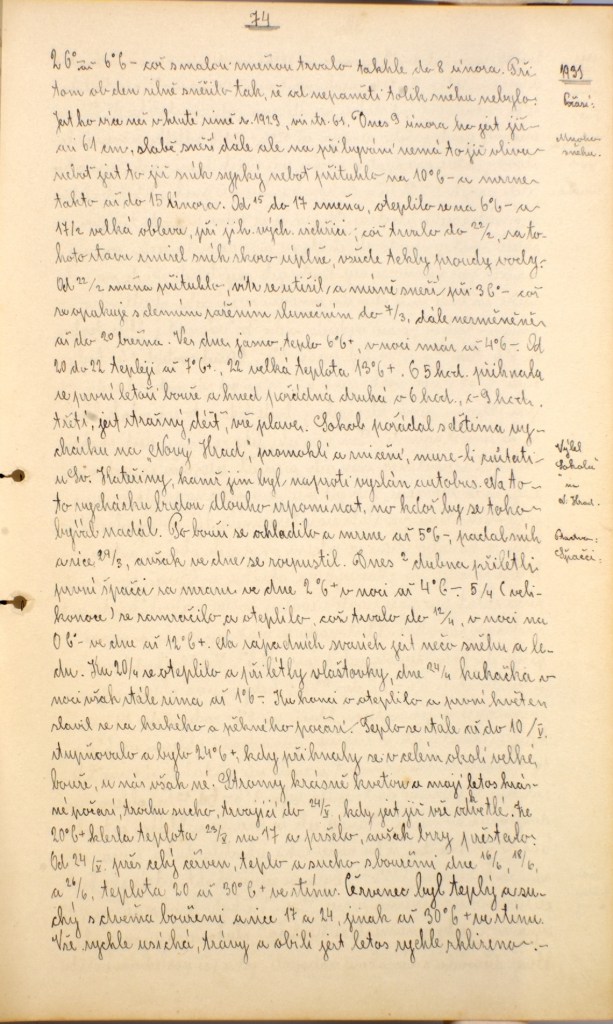 74
26° až 6°C - což s malou změnou trvalo takhle do 8 února. Při
1931
tom ob den silně sněžilo tak, že od nepaměti tolik sněhu nebylo.
Počasí:
Jest ho více než v kruté zimě v r. 1929, viz str. 61. Dnes 9 února ho jest již
Mnoho
sněhu.
asi 61 cm, slabě sněží dále ale na přibývání nemá to již vlivu
neboť jest to již sníh sypký neboť přituhlo na 10°C - a mrzne
takto až do 15 února. Od 15 do 17 změna, oteplilo se na 6°C - a
17/2 velká obleva, při jih. vých. vichřici; což trvalo do 22/2, za to-
hoto stavu zmizel sníh skoro úplně, všude tekly proudy vody.
Od 22/2 změna přituhlo, vítr se utišil, a mírně sněží při 3°C - což
se opakuje s denním zářením slunečním do 7/3, dále nezměněně
až do 20 března. Ves dne, jasno, teplo 6°C+, v noci mráz až 4°C -. Od
20 do 22 tepleji až 7°C+, 22 velká teplota 13°C+. O 5 hod. přihnala
se první letoší bouře a hned pořádná druhá v 6 hod., v 9 hod.
třetí, jest strašný déšť, vše plave. Sokol pořádal s dětima vy-
cházku na "Nový Hrad", promokli a zničeni, museli zůstati
Výlet
Sokolů
na
N. Hrad.
u Sv. Kateřiny, kamž jim byl naproti vyslán autobus. Na to-
to vycházku budou dlouho vzpomínat, no kdož by se toho
býval nadál. Po bouři se ochladilo a mrzne až 5°C -, padal sníh
a sice 29/3, avšak ve dne se rozpustil. Dnes 2 dubna přilétli
Špačci:
první špačci za mrazu ve dne 2°C+ v noci až 4°C -. 5/4 (veli-
konoce) se zamračilo a oteplilo, což trvalo do 12/4, v noci na
0°C - ve dne až 12°C+. Na západních svazích jest něco sněhu a le-
du. Ku 20/4 se oteplilo a přilétly vlaštovky, dne 24/4 kukačka v
noci však stále zima až 1°C -. Ku konci v oteplilo a první květen
slavil se za hezkého a pěkného počasí. Teplo se stále až do 10/V.
stupňovalo a bylo 24°C+, kdy přihnaly se v celém okolí velké
bouře, u nás však né. Stromy krásně kvetou a mají letos krás-
né počasí, trochu sucho, trvající do 24/V, kdy jest již vše odkvetlé. Ze
20°C+ klesla teplota 23/V na 17 a pršelo, avšak brzy přestalo.
Od 24/V. přes celý červen, teplo a sucho s bouřemi dne 16/6, 18/6,
a 26/6, teplota 20 až 30°C+ ve stínu. Červenec byl teplý a su-
chý s dvěma bouřemi a sice 17 a 24, jinak až 30°C+ ve stínu.
Vše rychle usíchá, trávy a obilí jest letos rychle sklizeno. -